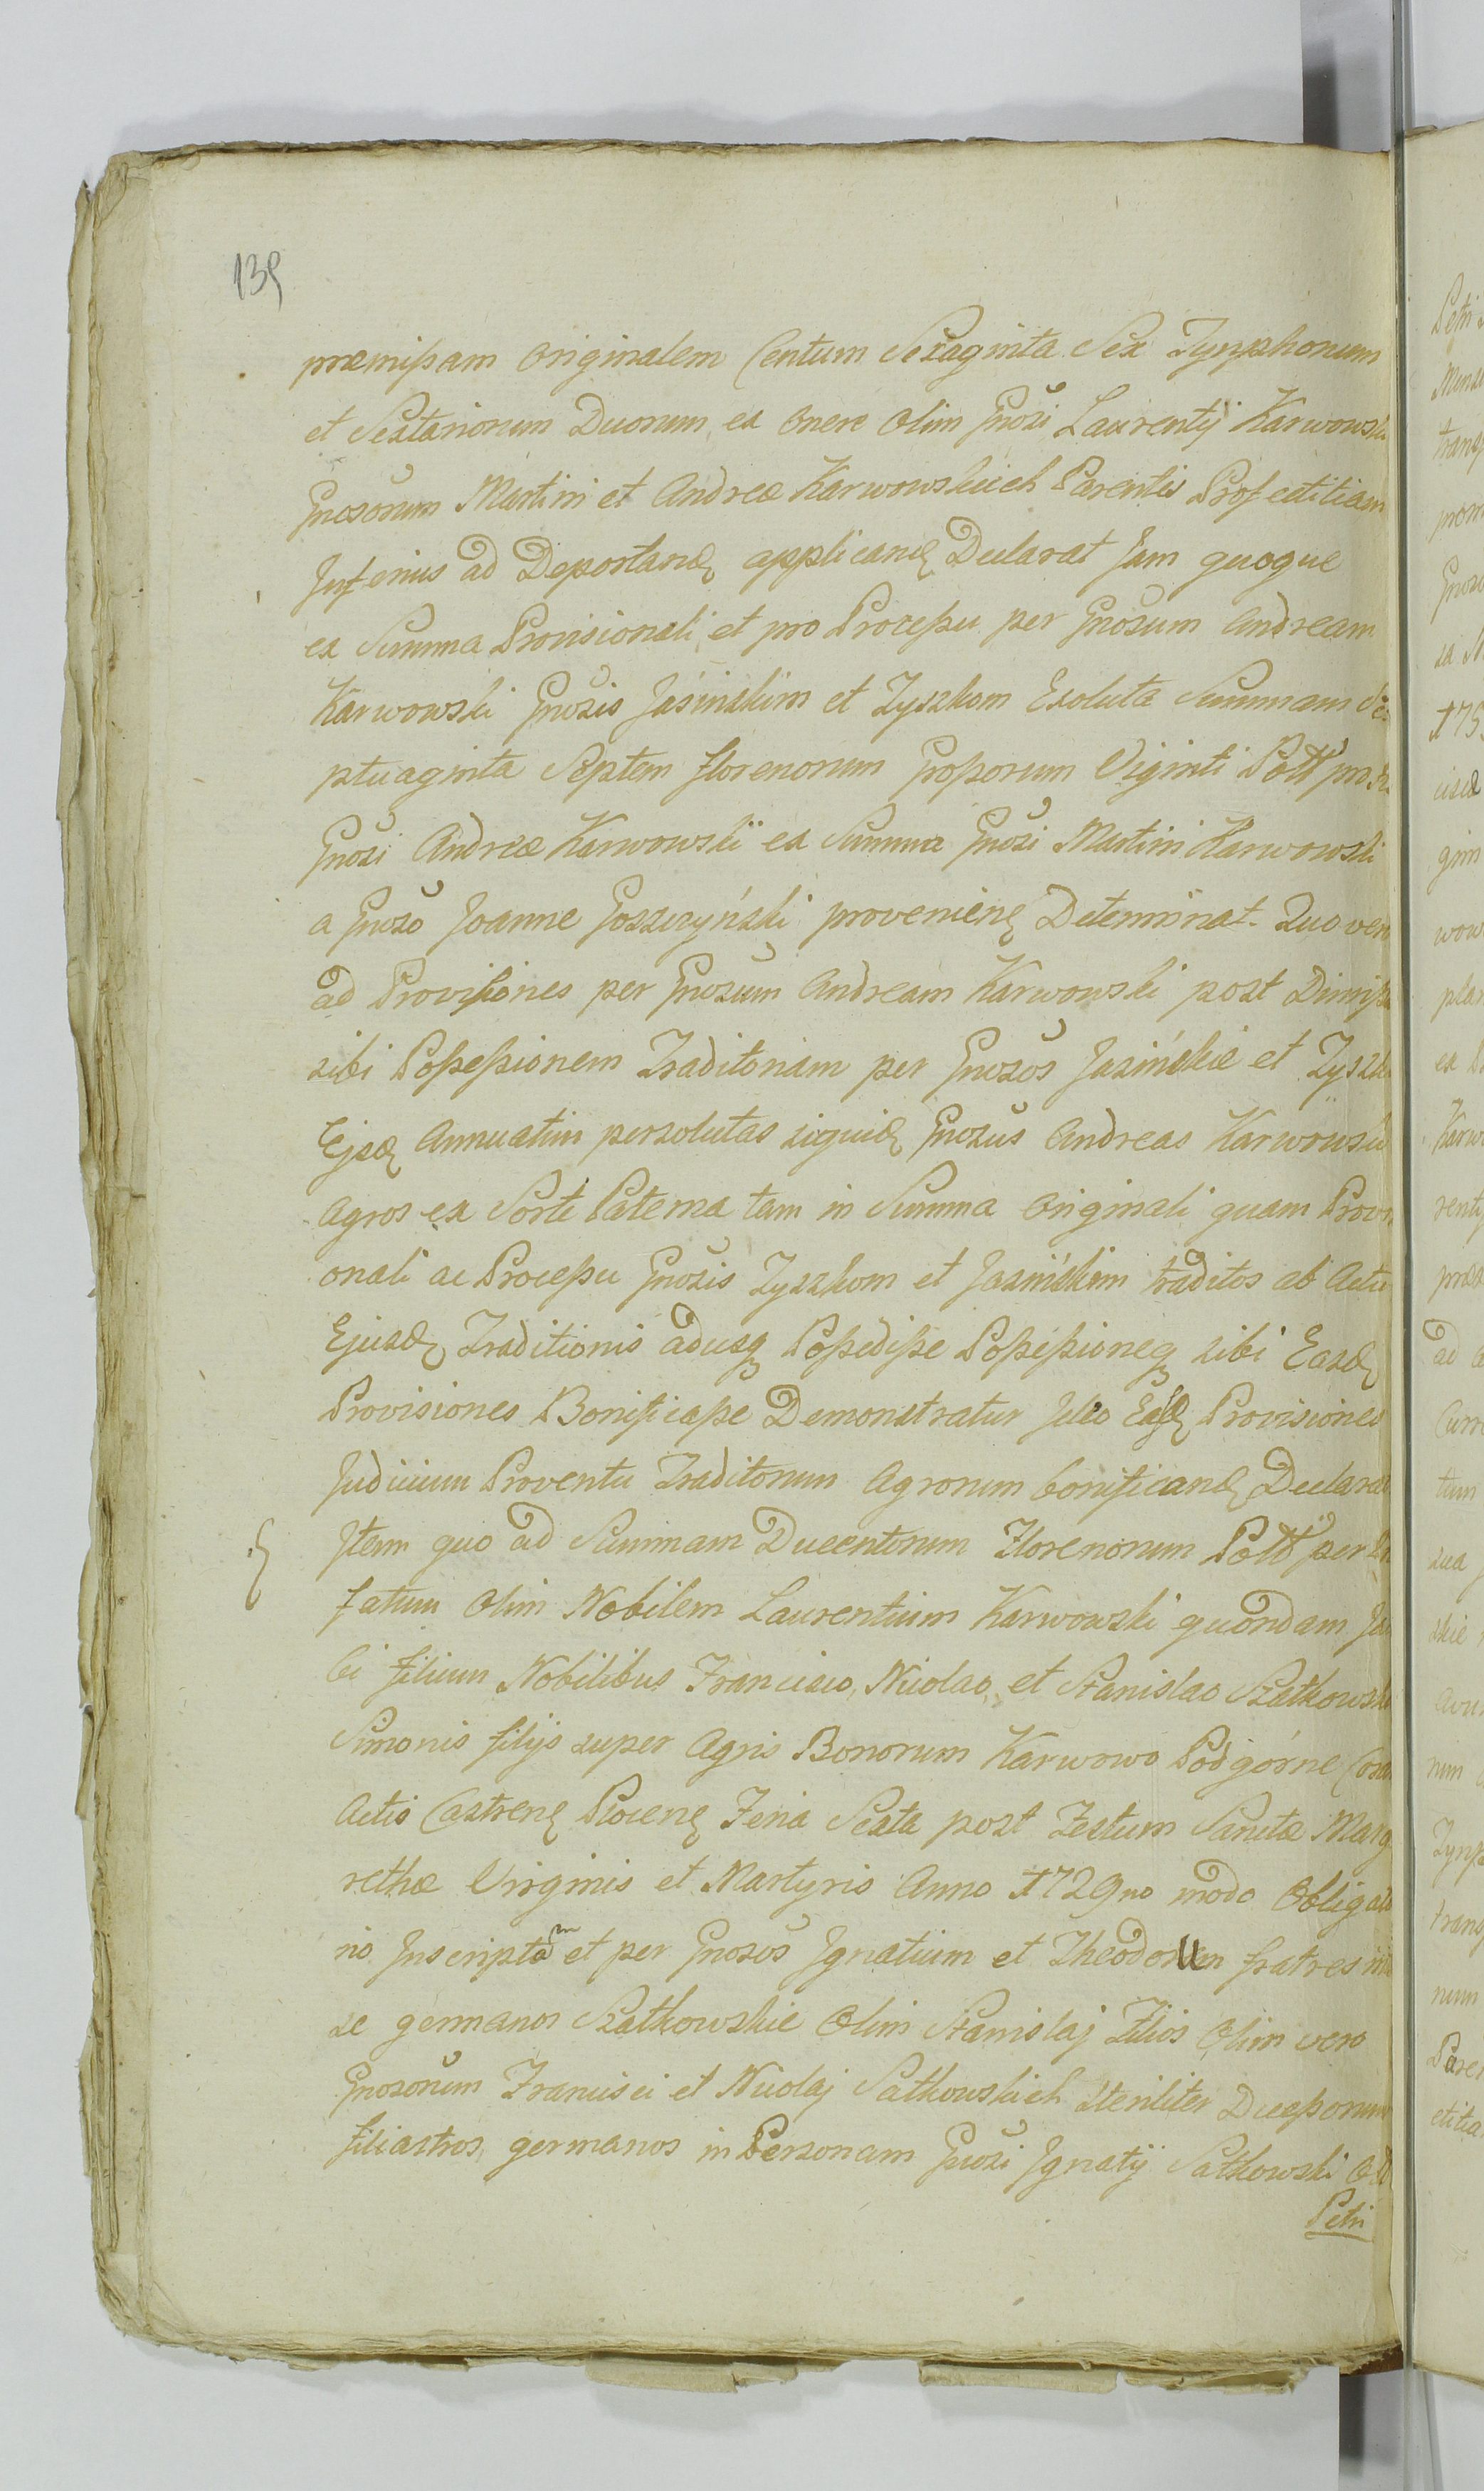 139
præmissam Originalem Centum Sexaginta Sex Tynphonum
et Sextarionum Duorum, ex Onere Olim Gnosi Laurentij Karwowski
Gnosorum Martini et Andreæ Karwowskich Parentis Profectitiam
Inferius ad Deportand applicand Declarat Jam quoque
ex Summa Provisionali, et pro Processu per Gnosum Andream
Karwowski Gnosis Jasinskim et Zyszkom Exoluta Summam Se
ptuaginta Septem florenorum Grossorum Viginti Poll
Gnosi Andreæ Karwowski ex Summa Gnosi Martini Karwowski
a Gnoso Joanne Goszczyński provenien Determinat. Quo vero
ad Provisiones per Gnosum Andream Karwowski post
sibi Possessionem Traditoriam per Gnosos Jasińskie et
Ejsd Annuatim persolutas siquid Gnosus Andreas Karwowski
Agros ex Sorte Paterna tam in Summa Originali quam
onali ac Processu Gnosis Zyszkom et Jasińskim traditos ab Actu
Ejusd Traditionis adusq Possedisse Possessioneq sibi Easd
Provisiones Bonificasse Demonstratur Ideo Easd Provisiones
Judicium Proventu Traditorum Agrorum bonificand Declarat
Item quo ad Summam Ducentorum Florenorum Poll per
fatum Olim Nobilem Laurentium Karwowski quondam
bi filium Nobilibus Francisco, Nicolao, et Stanislao Szatkowski
Simonis filijs super Agris Bonorum Karwowo Podgórne
Actis Castren Feria Sexta post Festum Sanctæ Marga
rethæ Virginis et Martyris Anno 1729no modo
rio Inscriptam et per Gnosos Ignatium et Theodorum fratres
se germanos Szatkowskie Olim Stanislaj Filios Olim vero
Gnosorum Francisci et Nicolaj Satkowskich steriliter Decessorum
filiastros, germanos in Personam Gnosi Ignatij Satkowski
Petri